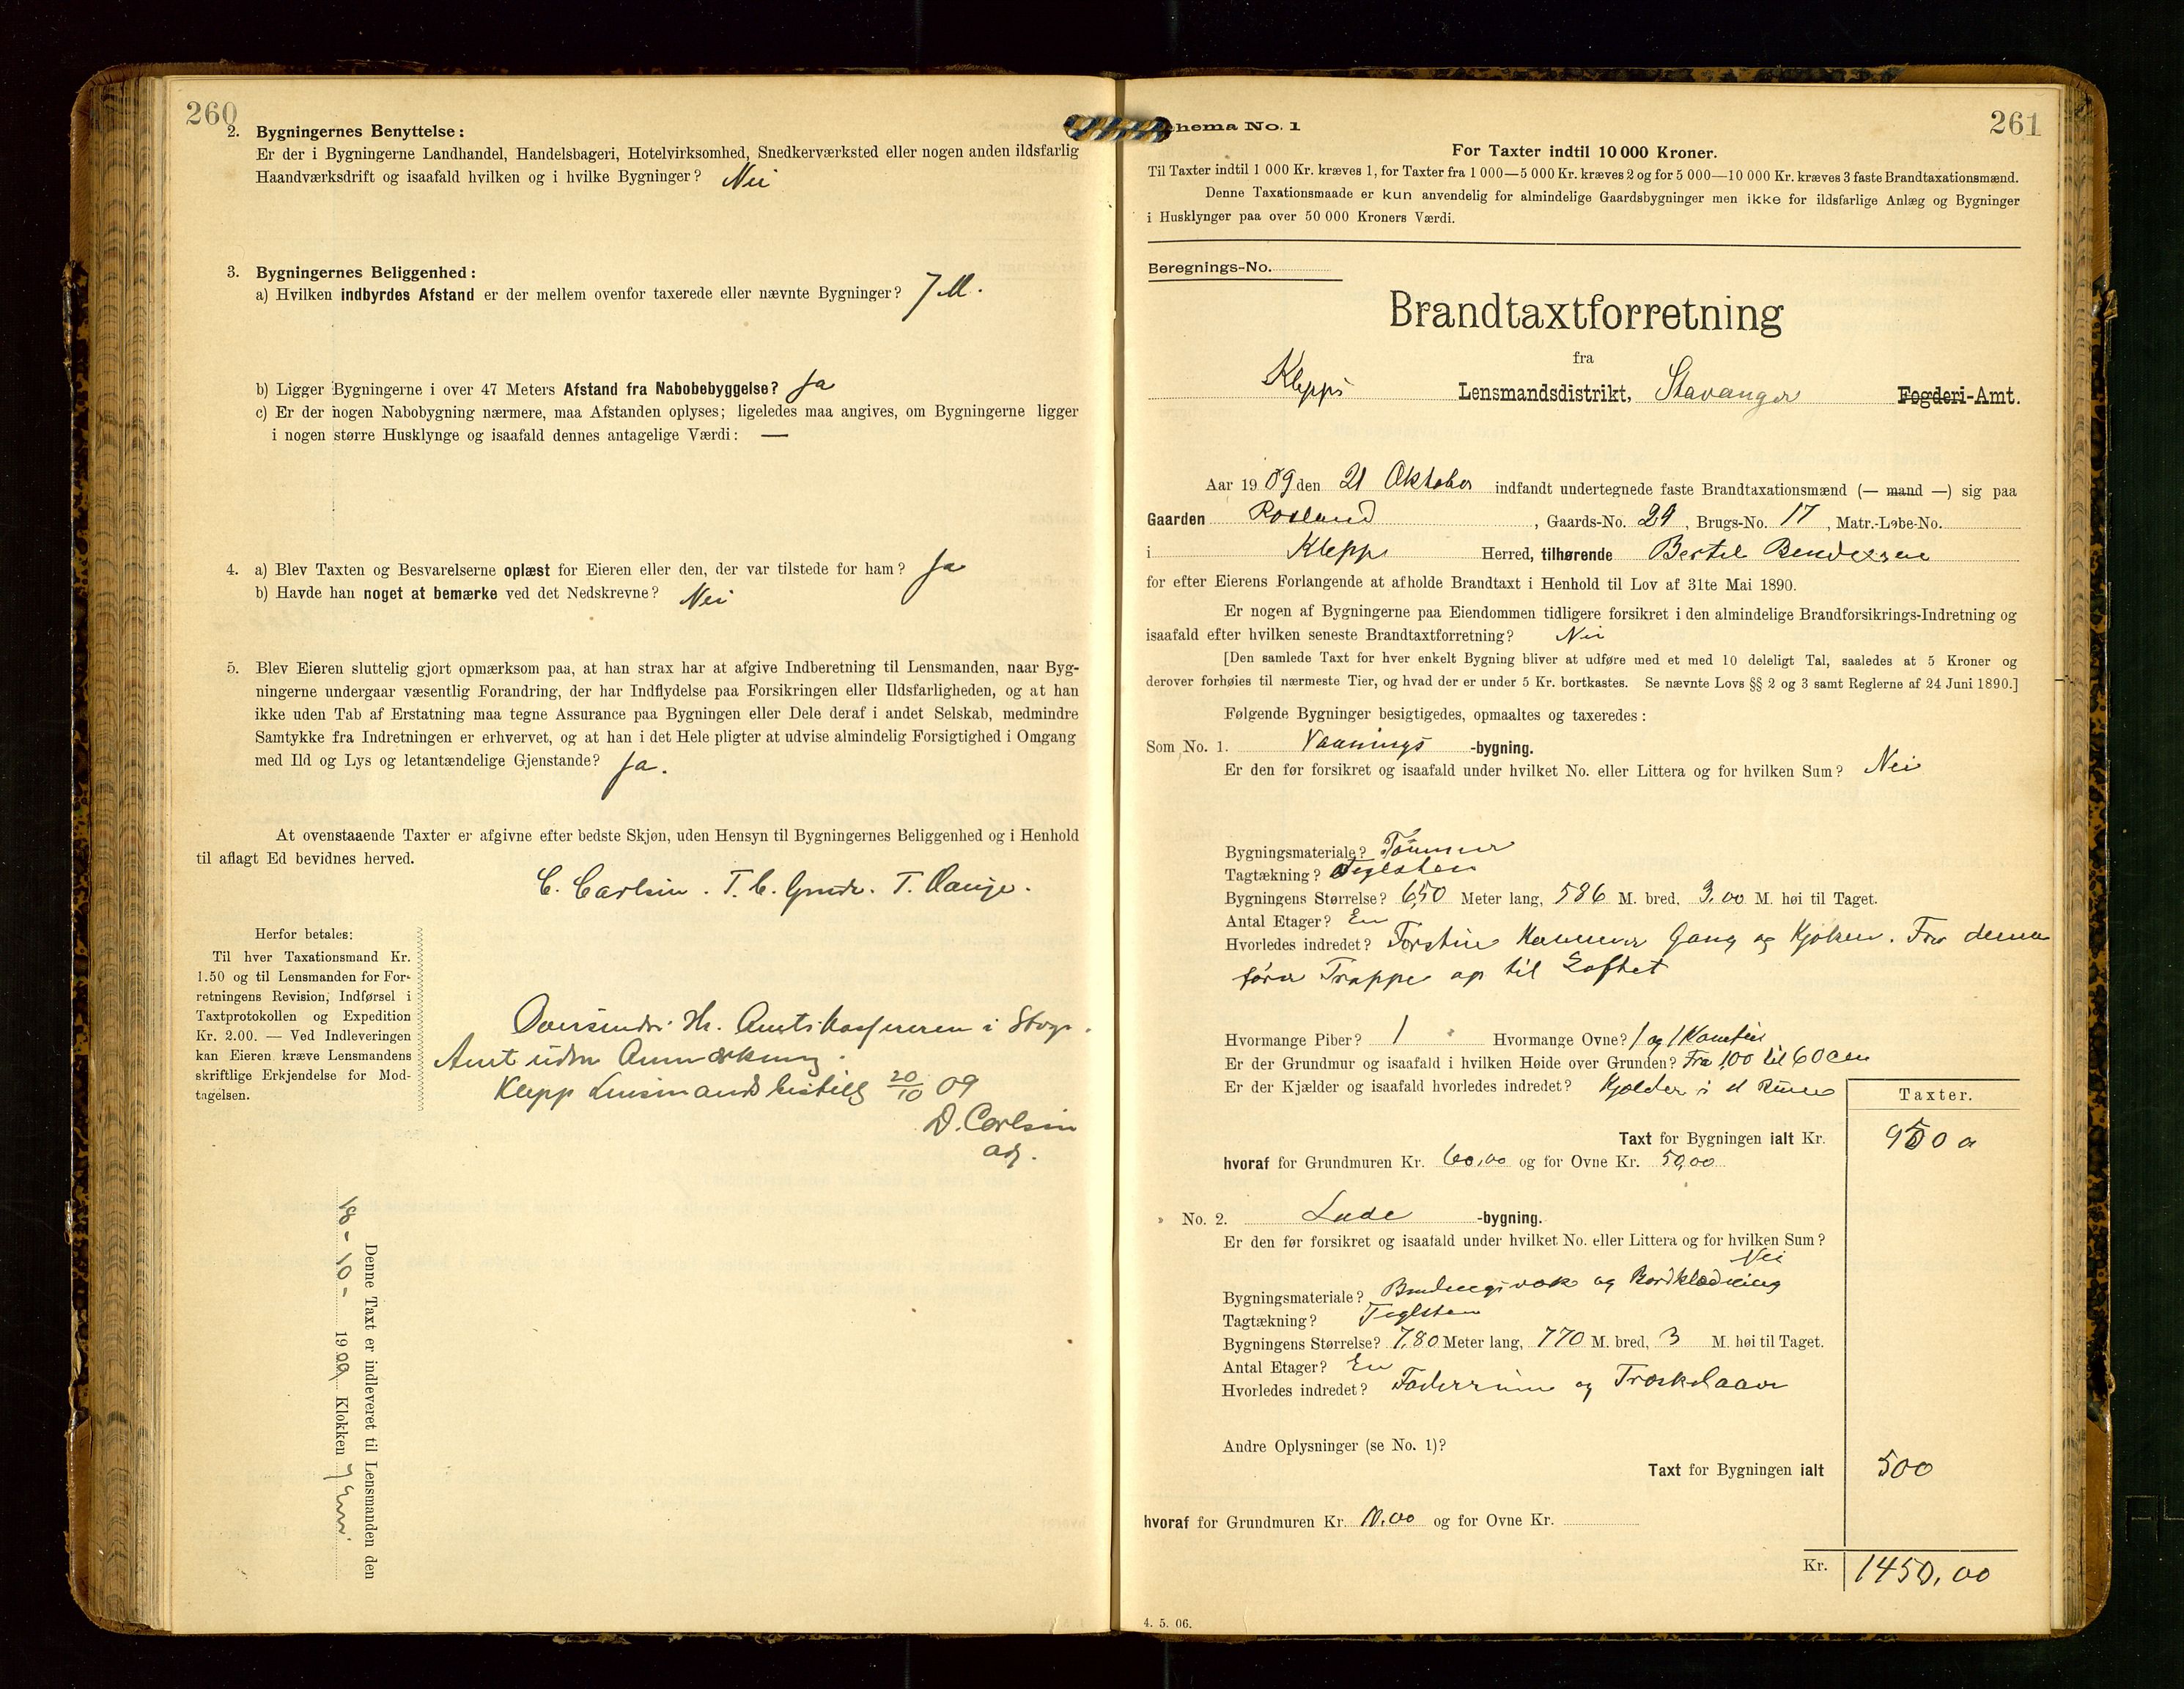 260
2. Bygningernes Benyttelse:
Er der i Bygningerne Landhandel, Handelsbageri, Hotelvirksomhed, Snedkerværksted eller nogen anden ildsfarlig
Haandværksdrift og isaafald hvilken og i hvilke Bygninger? Nei
3. Bygningernes Beliggenhed:
a) Hvilken indbyrdes Afstand er der mellem ovenfor taxerede eller nævnte Bygninger? 7 M.
b) Ligger Bygningerne i over 47 Meters Afstand fra Nabobebyggelse? Ja
c) Er der nogen Nabobygning nærmere, maa Afstanden oplyses; ligeledes maa angives, om Bygningerne ligger
i nogen større Husklynge og isaafald dennes antagelige Værdi: —
4. a) Blev Taxten og Besvarelserne oplæst for Eieren eller den, der var tilstede for ham? Ja
b) Havde han noget at bemærke ved det Nedskrevne? Nei
5. Blev Eieren sluttelig gjort opmærksom paa, at han strax har at afgive Indberetning til Lensmanden, naar Byg-
ningerne undergaar væsentlig Forandring, der har Indflydelse paa Forsikringen eller Ildsfarligheden, og at han
ikke uden Tab af Erstatning maa tegne Assurance paa Bygningen eller Dele deraf i andet Selskab, medmindre
Samtykke fra Indretningen er erhvervet, og at han i det Hele pligter at udvise almindelig Forsigtighed i Omgang
med Ild og Lys og letantændelige Gjenstande? Ja.
At ovenstaaende Taxter er afgivne efter bedste Skjøn, uden Hensyn til Bygningernes Beliggenhed og i Henhold
til aflagt Ed bevidnes herved.
C. Carlsen. T. C. T.
Herfor betales:
Til hver Taxationsmand Kr.
1.50 og til Lensmanden for For-
retningens Revision, Indførsel i
Taxtprotokollen og Expedition
Kr. 2.00. — Ved Indleveringen
kan Eieren kræve Lensmandens
skriftlige Erkjendelse for Mod-
tagelsen.
Oversendes Hr. Amtskassereren i Stvgr.
Amt uden Anmærkning.
Klepp Lensmandsbestill 20/10 09
D. Carlsen
adj.
Denne Taxt er indleveret til Lensmanden den
18 - 10 - 1909 Klokken 7 Em.
261
hema No. 1
For Taxter indtil 10 000 Kroner.
Til Taxter indtil 1 000 Kr. kræves 1, for Taxter fra 1 000—5 000 Kr. kræves 2 og for 5 000—10 000 Kr. kræves 3 faste Brandtaxationsmænd.
Denne Taxationsmaade er kun anvendelig for almindelige Gaardsbygninger men ikke for ildsfarlige Anlæg og Bygninger
i Husklynger paa over 50 000 Kroners Værdi.
Beregnings-No.
Brandtaxtforretning
fra
Klepps Lensmandsdistrikt, Stavanger Fogderi-Amt.
Aar 1909 den 21 Oktober indfandt undertegnede faste Brandtaxationsmænd (— mand —) sig paa
Gaarden Rosland, Gaards-No. 24, Brugs-No. 17, Matr.-Løbe-No.
i Klepps Herred, tilhørende Bertel Bendixsen
for efter Eierens Forlangende at afholde Brandtaxt i Henhold til Lov af 31te Mai 1890.
Er nogen af Bygningerne paa Eiendommen tidligere forsikret i den almindelige Brandforsikrings-Indretning og
isaafald efter hvilken seneste Brandtaxtforretning? Nei
[Den samlede Taxt for hver enkelt Bygning bliver at udføre med et med 10 deleligt Tal, saaledes at 5 Kroner og
derover forhøies til nærmeste Tier, og hvad der er under 5 Kr. bortkastes. Se nævnte Lovs §§ 2 og 3 samt Reglerne af 24 Juni 1890.]
Følgende Bygninger besigtigedes, opmaaltes og taxeredes:
Som No. 1. Vaanings -bygning.
Er den før forsikret og isaafald under hvilket No. eller Littera og for hvilken Sum? Nei
Bygningsmateriale? Tømmer
Tagtækning? Teglsten
Bygningens Størrelse? 6,50 Meter lang, 586 M. bred, 3,00 M. høi til Taget.
Antal Etager? En
Hvorledes indredet? Forstue Kammer Gang og Kjøken. Fra denne
fører Trappe op til Loftet
Hvormange Piber? 1 Hvormange Ovne? 1 og 1 Komfur
Er der Grundmur og isaafald i hvilken Høide over Grunden? Fra 1,00 til 60 cm
Er der Kjælder og isaafald hvorledes indredet? Kjelder i et Rum
Taxter.
Taxt for Bygningen ialt Kr. 950
hvoraf for Grundmuren Kr. 60,00 og for Ovne Kr. 50,00
No. 2. Lade -bygning.
Er den før forsikret og isaafald under hvilket No. eller Littera og for hvilken Sum?
Nei
Bygningsmateriale? Bindingsværk og Bordklædning
Tagtækning? Teglsten
Bygningens Størrelse? 7,80 Meter lang, 770 M. bred, 3 M. høi til Taget.
Antal Etager? En
Hvorledes indredet? Foderrum og Træskelaave
Andre Oplysninger (se No. 1)?
Taxt for Bygningen ialt 500
hvoraf for Grundmuren Kr. 10,00 og for Ovne Kr.
Kr. 1450,00
4. 5. 06.